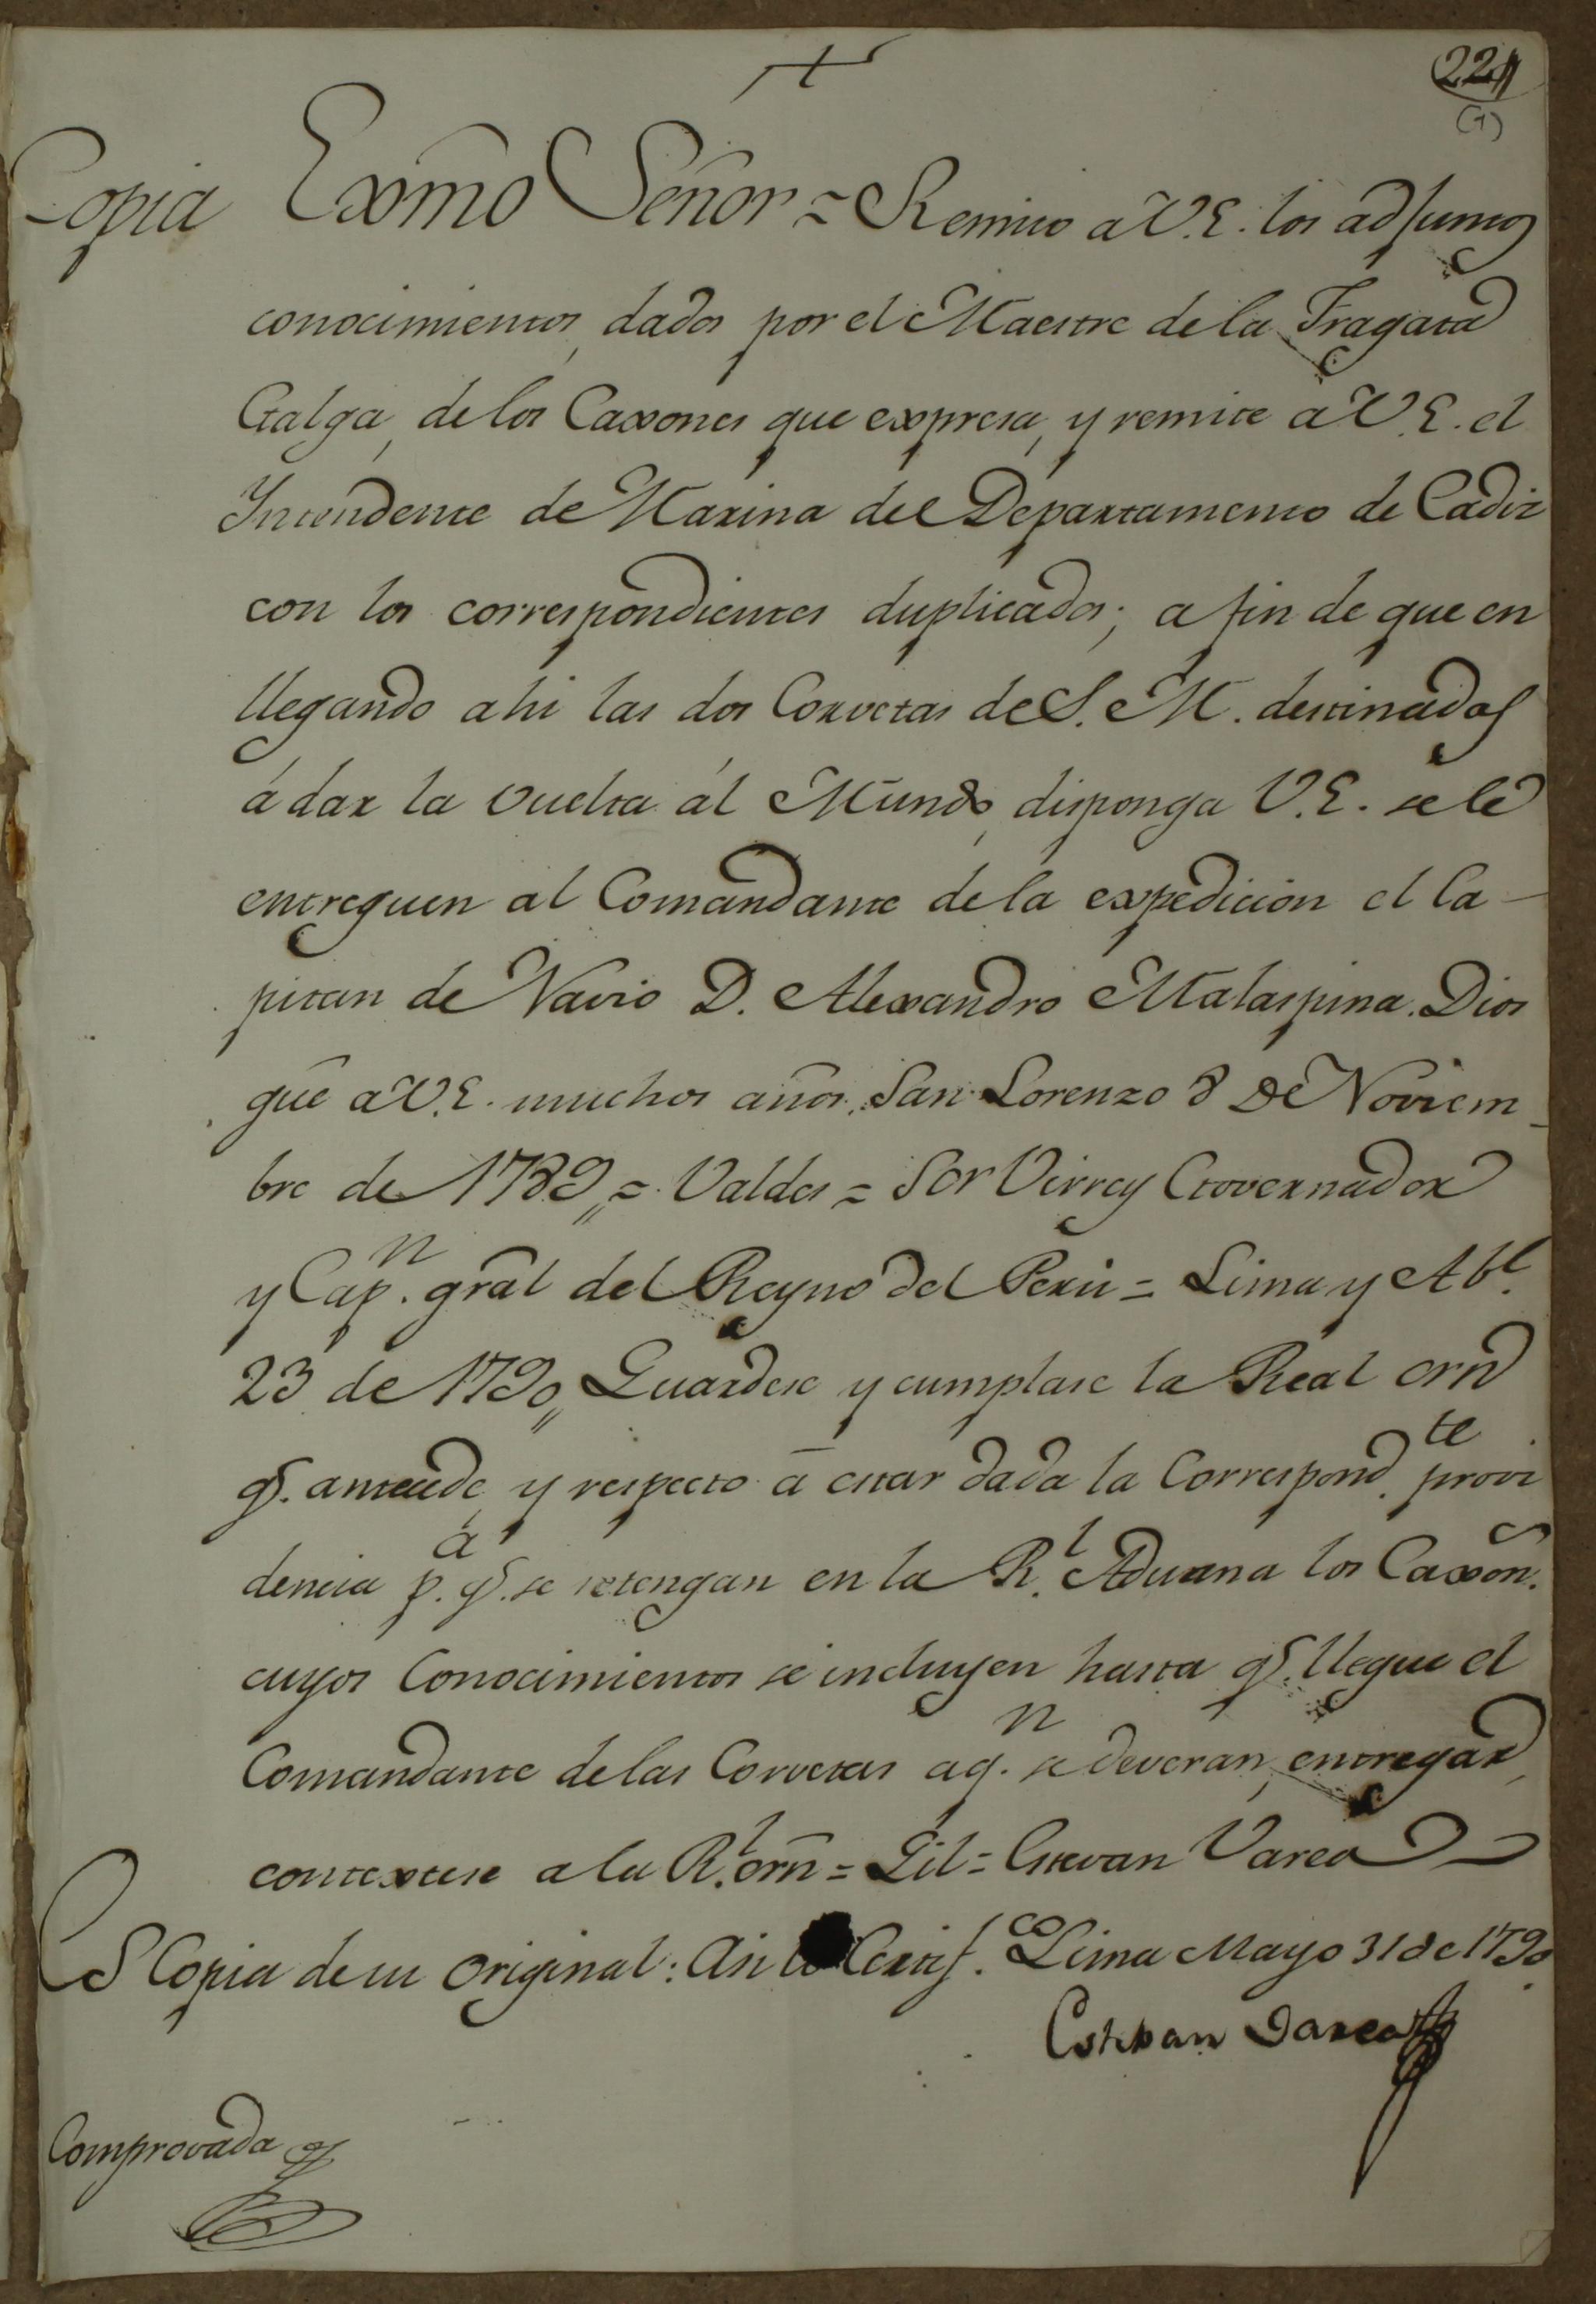 221
(1)
Copia Exmô Señor = Remito a V.E. los adjuntos
conocimientos, dados por el Maestre de la Fragata
Galga, de los Caxones que expresa, y remite a V.E. el
Yntendente de Marina del Departamento de Cadiz
con los correspondientes duplicados; a fin de que en
llegando ahi las dos Corvetas de S. M. destinadas
á dar la vuelta al Mundo, disponga V.E. se le
entreguen al Comandante de la expedicion el Ca-
pitan de Navio D. Alexandro Malaspina. Dios
gũe a V.E. muchos años. San Lorenzo 8 De Noviem-
bre de 1789,, = Valdes = Sor Virrey Governador
y Cap.n grãl del Reyno del Perú = Lima y Ab.l
23 de 1790,, Guardese y cumplase la Real orñ
q.e antecede, y respecto á estar dada la Correspond.te provi
dencia p.a q.e se retengan en la R.l Aduana los Caxon.s
cuyos Conocimientos se incluyen hasta q.e llegue el
Comandante de las Corvetas a q.n se deveran, entregar,
contextese a la R.l orñ = Gil = Estevan Varea
Es Copia de su original: Asi lo Certif.co Lima Mayo 31 de 1790
Esteban Varea
Comprovada